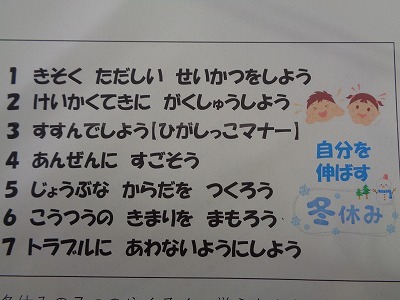 1 きそく ただしい せいかつをしよう
2 けいかくてきに がくしゅうしよう
3 すすんでしよう【ひがしっこマナー】
4 あんぜんに すごそう
5 じょうぶな からだを つくろう
6 こうつうの きまりを まもろう
7 トラブルに あわないようにしよう
自分を
伸ばす
冬休み